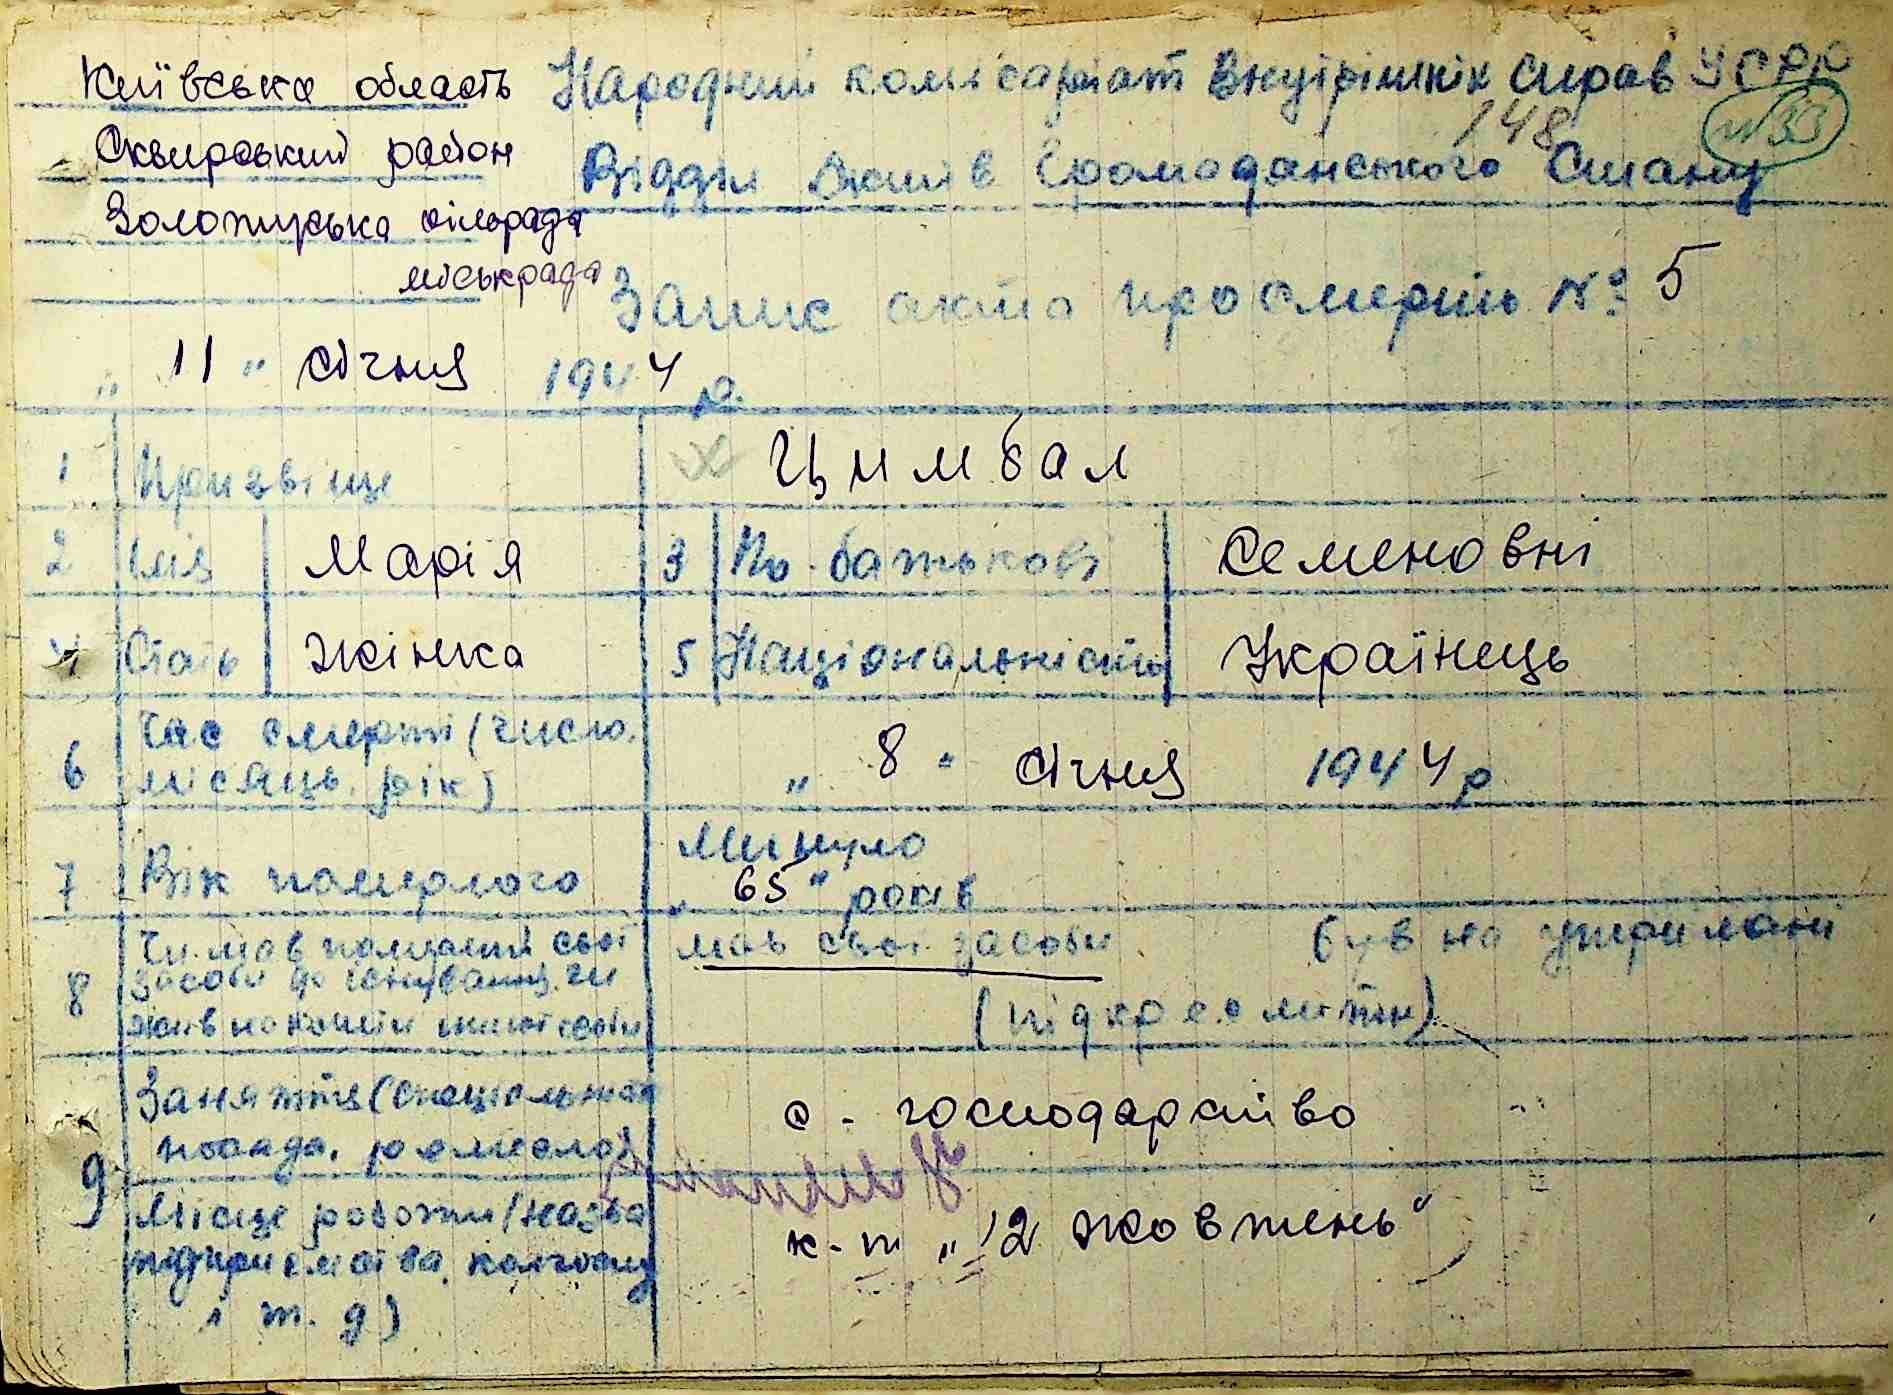 Київська область
Сквирський район
Золотуська сільрада
міськрада
Народний комісаріат Внутрішніх Справ УСРР
148
№33
Відділ Актів Громадянського Стану
Запис акта про смерть № 5
„ 11 " січня 1944 р.
1 Призвіще Цимбал
2 Імя Марія 3 По-батькові Семеновні
4 Стать жінка 5 Національність Українець
6 Час смерті (число.
місяць. рік) „ 8 " січня 1944 р
7 Вік померлого Минуло
„ 65 " років
8 Чи мав померлий свої
засоби до існування, чи
жив на кошти іншої особи
мав свої засоби був на утримані
(підкреслити)
9 Заняття (спеціальність
посада, ремесло) с - господарство
Місце роботи (назва
підприємства, колгоспу
і т. д) к-т „12 жовтень"